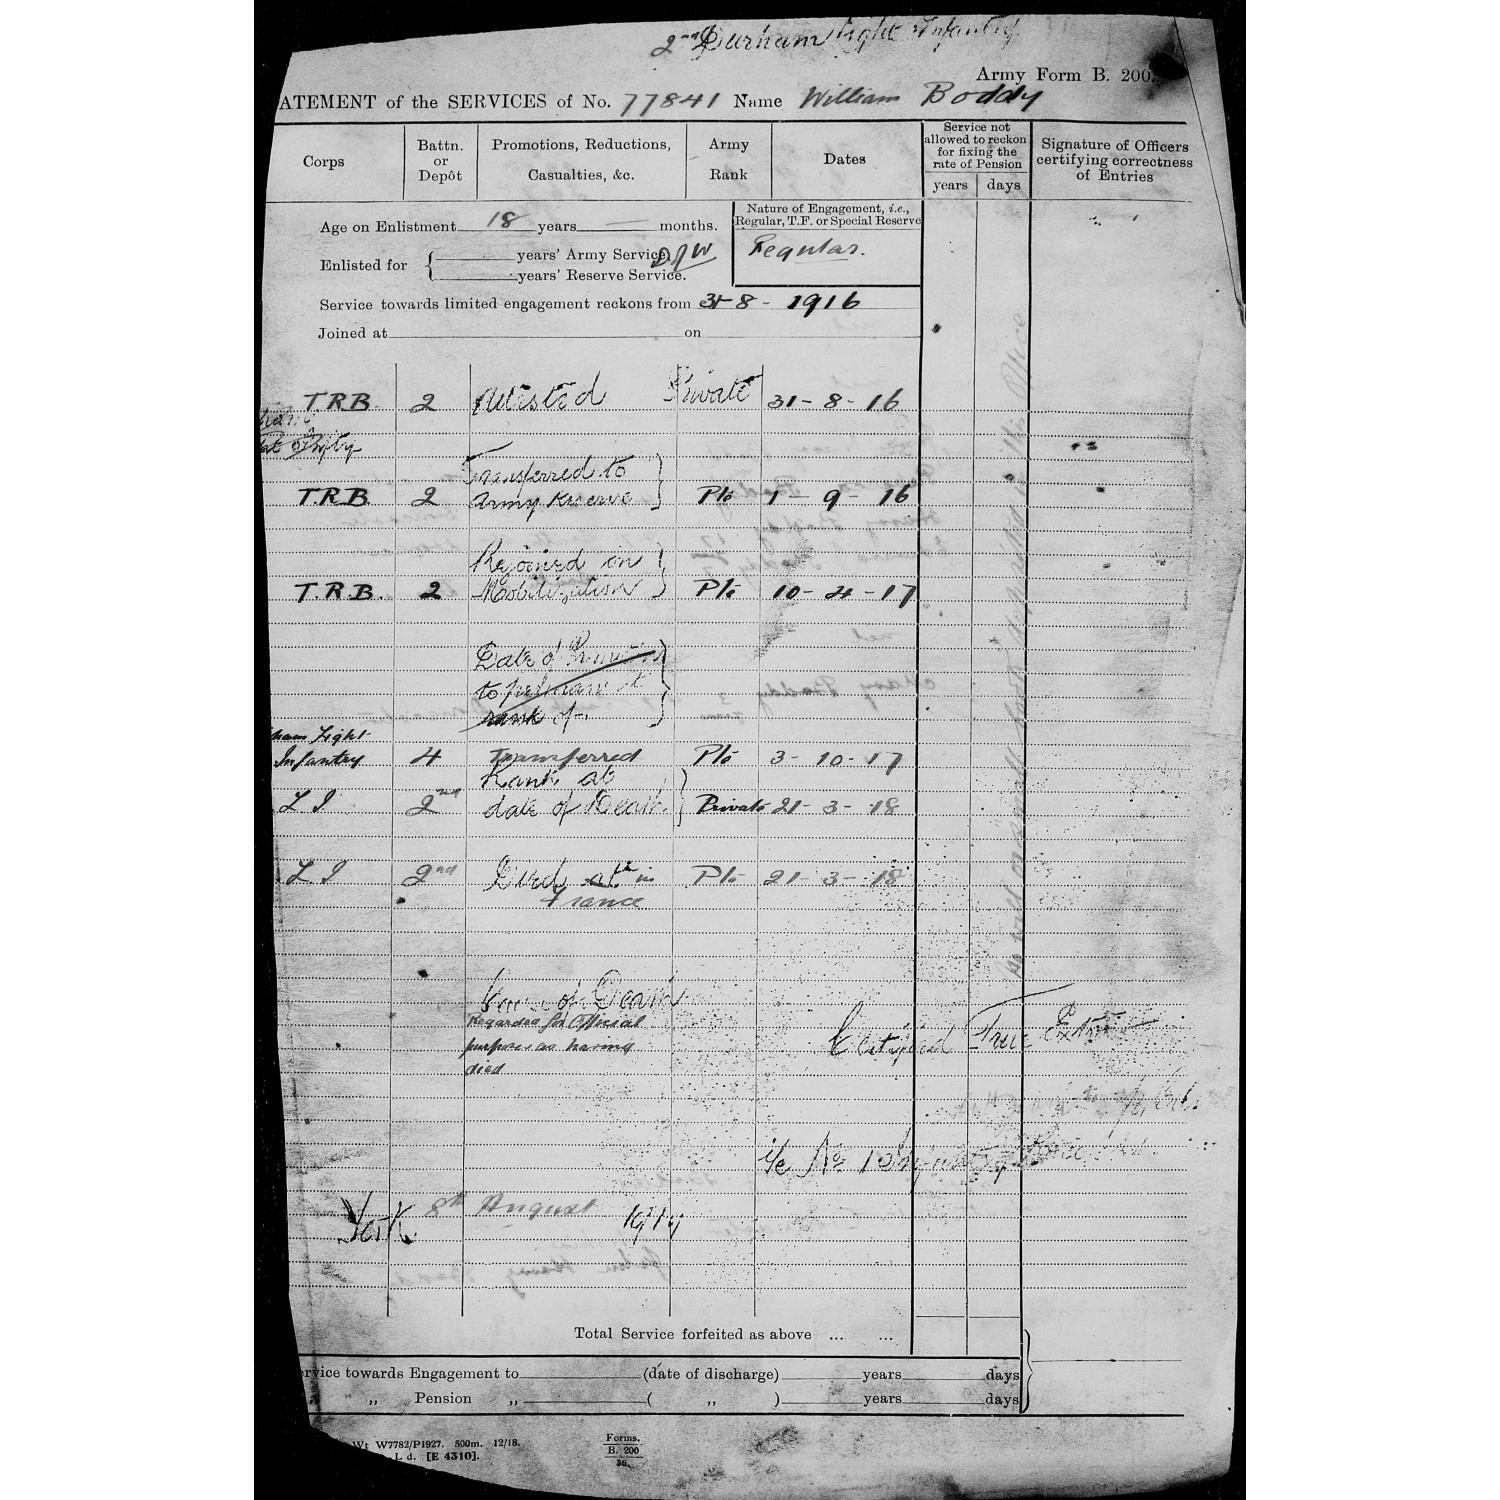 2nd Durham Light Infantry
Army Form B. 200.
ATEMENT of the SERVICES of No. 77841 Name William Boddy
Corps
Battn. or Depôt
Promotions, Reductions, Casualties, &c.
Army Rank
Dates
Service not allowed to reckon for fixing the rate of Pension
years days
Signature of Officers certifying correctness of Entries
Age on Enlistment 18 years — months.
Nature of Engagement, i.e., Regular, T.F. or Special Reserve
Regular.
Enlisted for { years' Army Service,
years' Reserve Service.
D/W
Service towards limited engagement reckons from 31-8-1916
Joined at on
T.R.B. 2 Attested Private 31-8-16
T.R.B. 2 Transferred to Army Reserve } Pte 1-9-16
T.R.B. 2 Rejoined on Mobilization } Pte 10-4-17
Date of
to permanent
rank of
ham Light
Infantry 4 Transferred Pte 3-10-17
L I 2nd Rank at date of Death. } Private 21-3-18
L I 2nd Died at in France Pte 21-3-18
Cause of Death
Regarded for Official
purposes as having
died
Certified True Extract
i/c No 1 Infantry Record
York 8th August 1919
Total Service forfeited as above ... ...
rvice towards Engagement to (date of discharge) years days
„ Pension „ ( „ ) years days
Wt W7782/P1927. 500m. 12/18.
L d. [E 4310].
Forms.
B. 200
36.